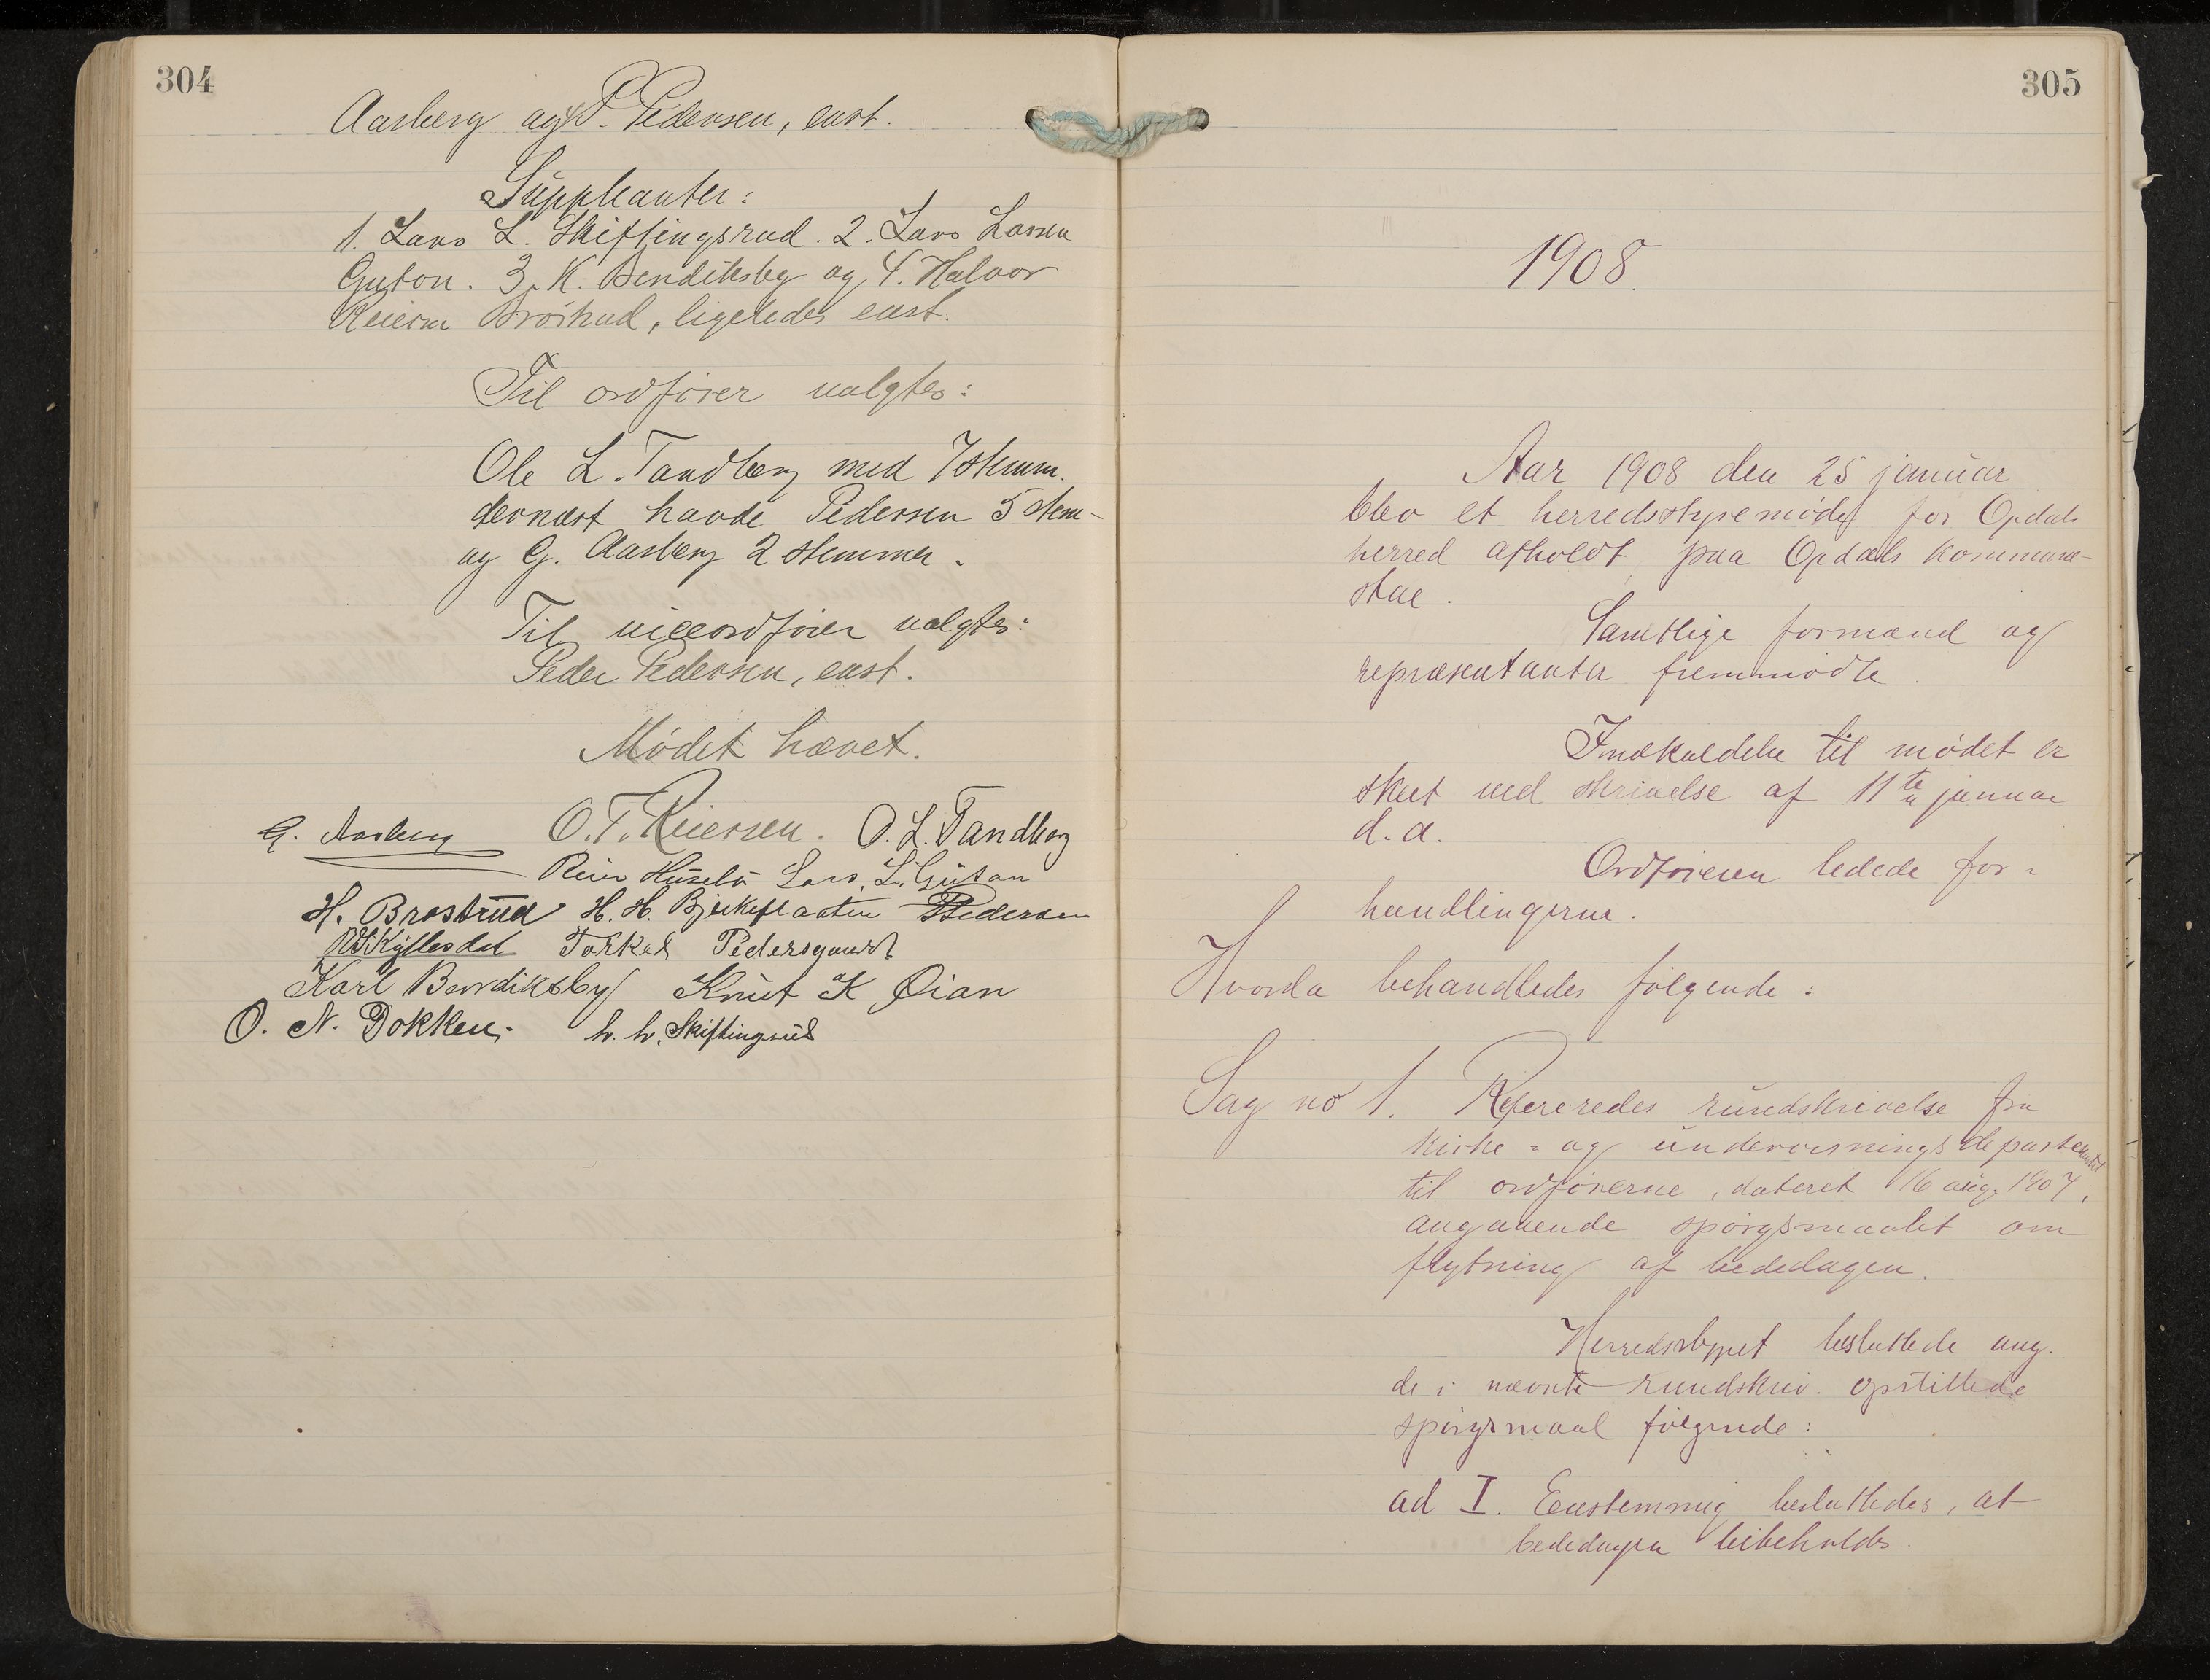 304
Aasberg og P. Pedersen, enst.
Suppleanter:
1. Lars L. Skiftingsrud. 2. Lars Larsen
Guton. 3. K. Bendiksby og 4. Halvor
Reiersen Brøstrud, ligeledes enst.
Til ordfører valgtes:
Ole L. Tandberg med 7 stemm.
dernæst havde Pedersen 5 stem-
og G. Aasberg 2 stemmer.
Til viceordfører valgtes:
Peder Pedersen, enst.
Mødet hævet.
G. Aasberg O. T. Reiersen. O. L. Tandberg
Lars L. Gutan
H. Brøstrud H. H. Bjerkeflaaten P Pedersen
Torkel Pedersgaard
Karl Bendiksby Knut K Øian
O. N. Dokken. L. L. Skiftingsrud
305
1908.
Aar 1908 den 25 januar
blev et herredsstyremøde for Opdals
herred afholdt paa Opdals kommune-
stue.
Samtlige formænd og
repræsentanter fremmødte.
Indkaldelse til mødet er
skeet ved skrivelse af 11te januar
d. a.
Ordføreren ledede for-
handlingerne.
Hvorda behandledes følgende:
Sag no 1. Refereredes rundskrivelse fra
kirke- og undervisningsdepartementet
til ordførerne, dateret 16 aug. 1907,
angaaende spørgsmaalet om
flytning af bededagen.
Herredsstyret besluttede ang.
de i nævnte rundskriv. opstillede
spørgsmaal følgende:
ad I. Enstemmig besluttedes, at
bededagen bibeholdes.